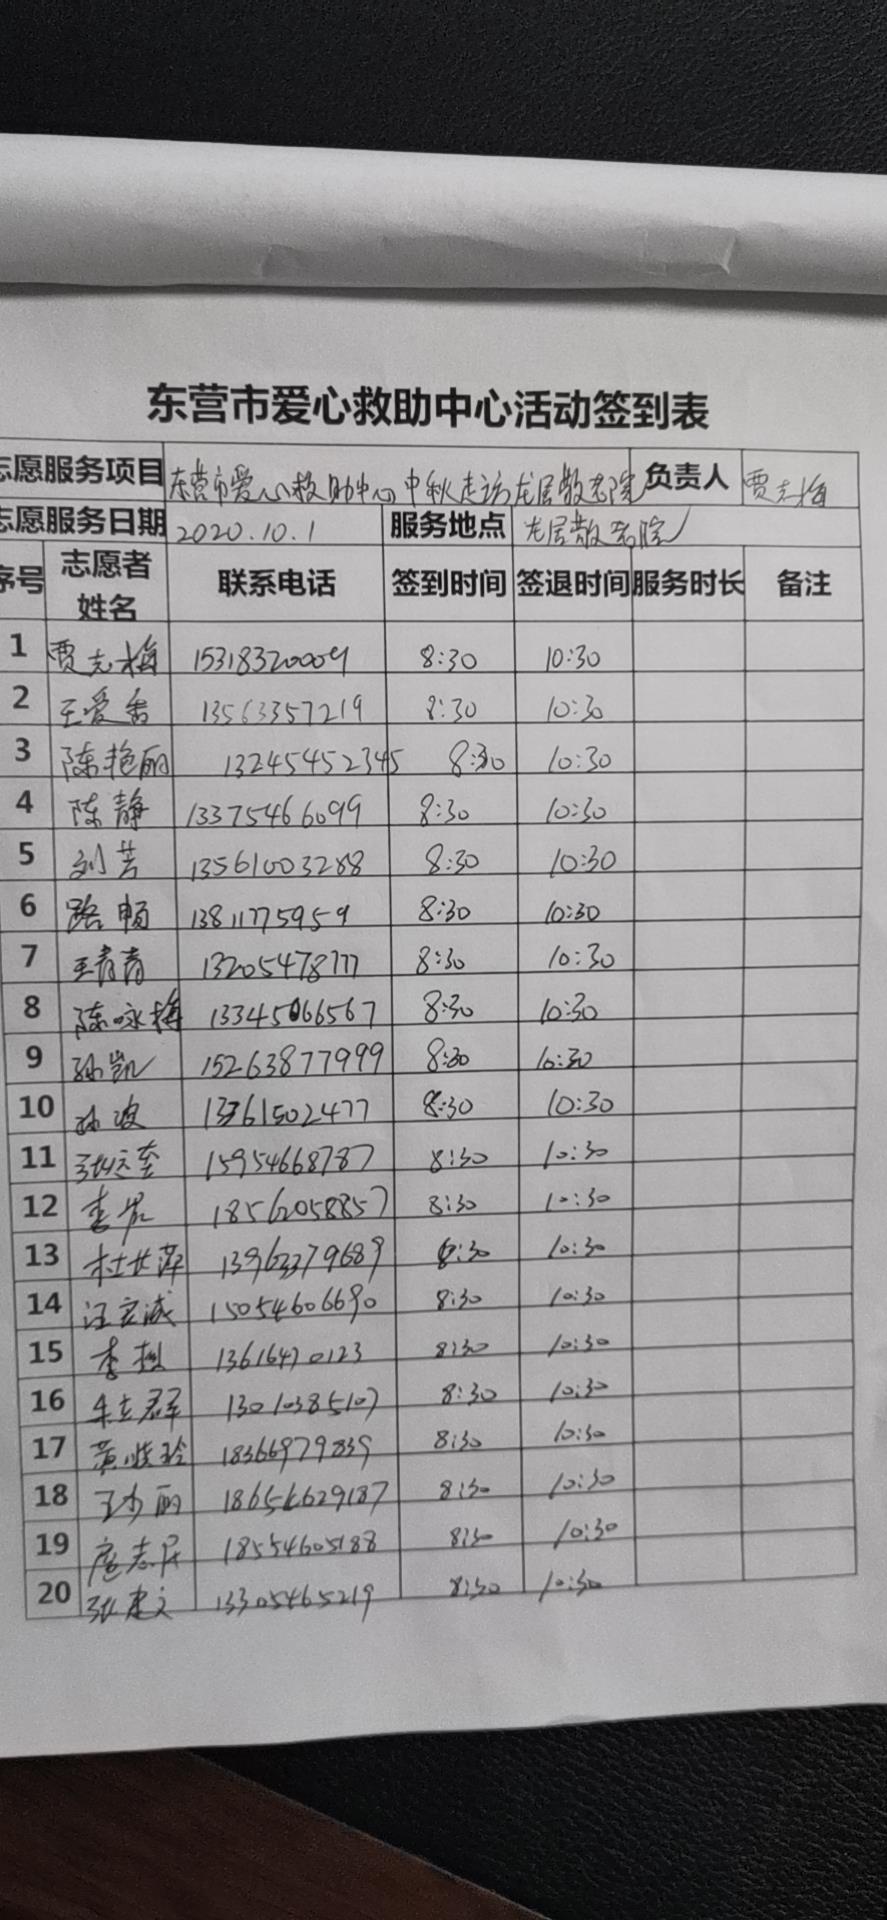 东营市爱心救助中心活动签到表
志愿服务项目 东营市爱心救助中心中秋走访龙居敬老院 负责人 贾志梅
志愿服务日期 2020.10.1 服务地点 龙居敬老院
序号 志愿者姓名 联系电话 签到时间 签退时间 服务时长 备注
1 贾志梅 15318320009 8:30 10:30
2 王爱香 13563357219 8:30 10:30
3 陈艳丽 13245452345 8:30 10:30
4 陈静 13375466099 8:30 10:30
5 刘芸 13561003288 8:30 10:30
6 路畅 13811775959 8:30 10:30
7 王青青 13205478777 8:30 10:30
8 陈咏梅 13345066567 8:30 10:30
9 孙凯 15263877999 8:30 10:30
10 孙波 13361502477 8:30 10:30
11 15954668787 8:30 10:30
12 18562058857 8:30 10:30
13 13963379689 8:30 10:30
14 汪宏诚 15054606690 8:30 10:30
15 13616470123 8:30 10:30
16 朱立群 13010385107 8:30 10:30
17 黄晓玲 18366979839 8:30 10:30
18 王少丽 8:30 10:30
19 18554605188 8:30 10:30
20 张建文 13305465219 8:30 10:30